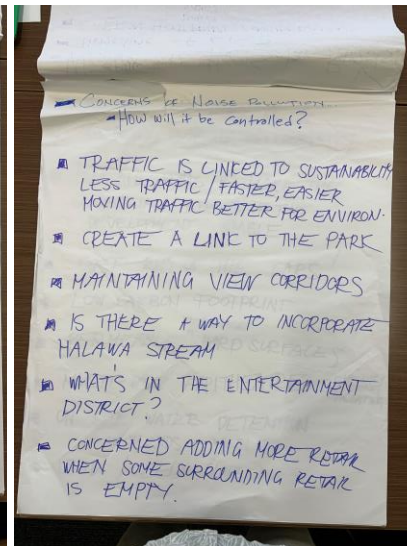 - CONCERNS OF NOISE POLLUTION.
- How will it be controlled?
▪ TRAFFIC IS LINKED TO SUSTAINABILITY
LESS TRAFFIC / FASTER, EASIER
MOVING TRAFFIC BETTER FOR ENVIRON.
▪ CREATE A LINK TO THE PARK
▪ MAINTAINING VIEW CORRIDORS
▪ IS THERE A WAY TO INCORPORATE
HALAWA STREAM
▪ WHAT'S IN THE ENTERTAINMENT
DISTRICT?
▪ CONCERNED ADDING MORE RETAIL
WHEN SOME SURROUNDING RETAIL
IS EMPTY.